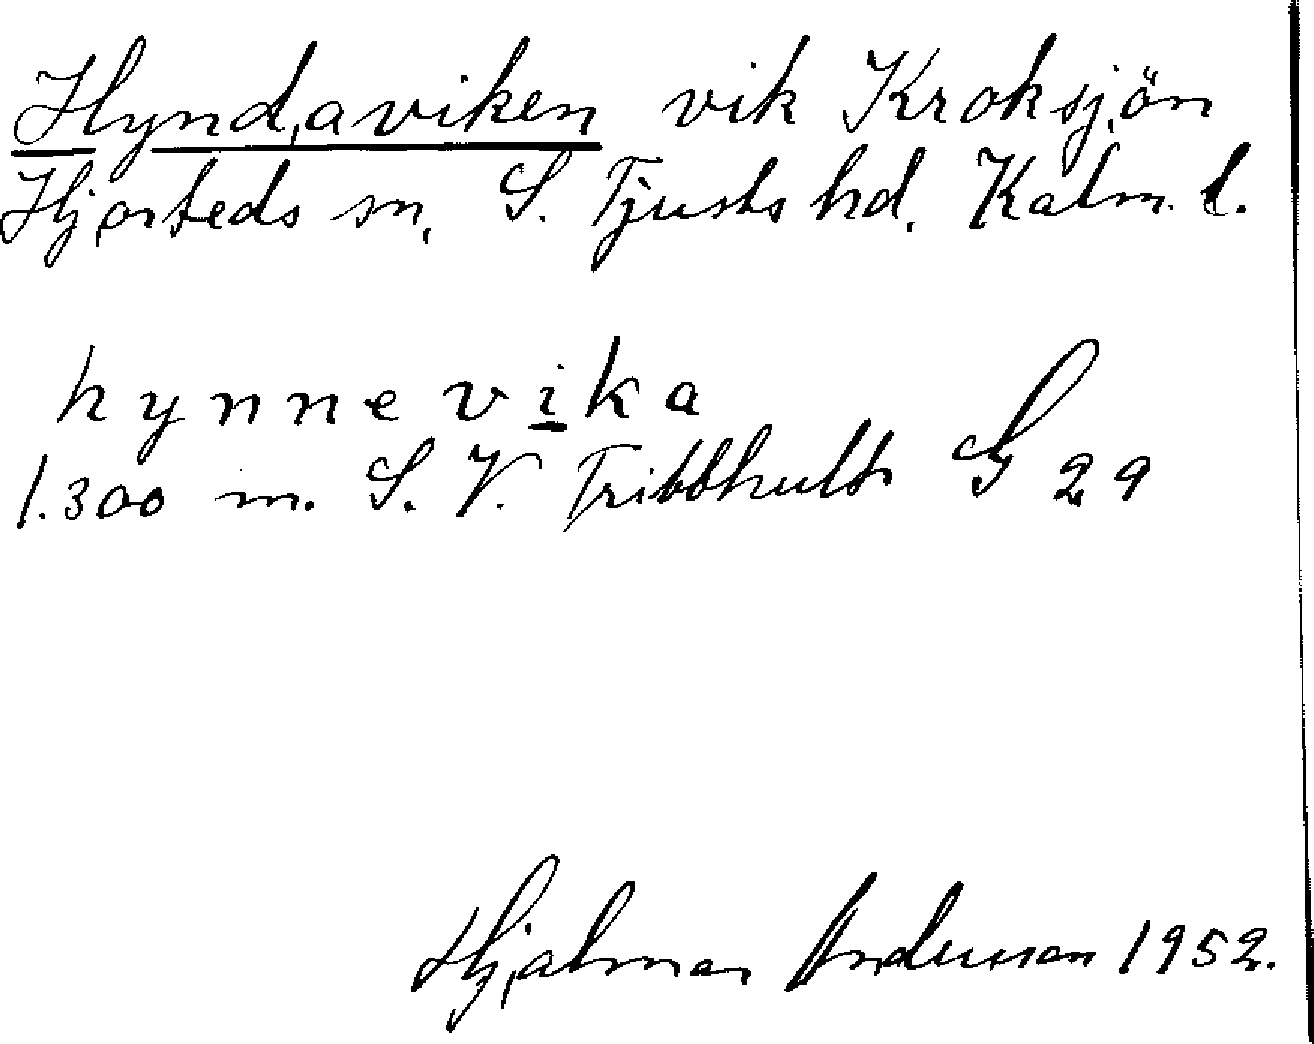 Hyndaviken vik Kroksjön
Hjorteds sn. S. Tjusts hd. Kalm. l.
hynnevika
1.300 m. S. V. Tribbhult G 29
Hjalmar Andersson 1952.